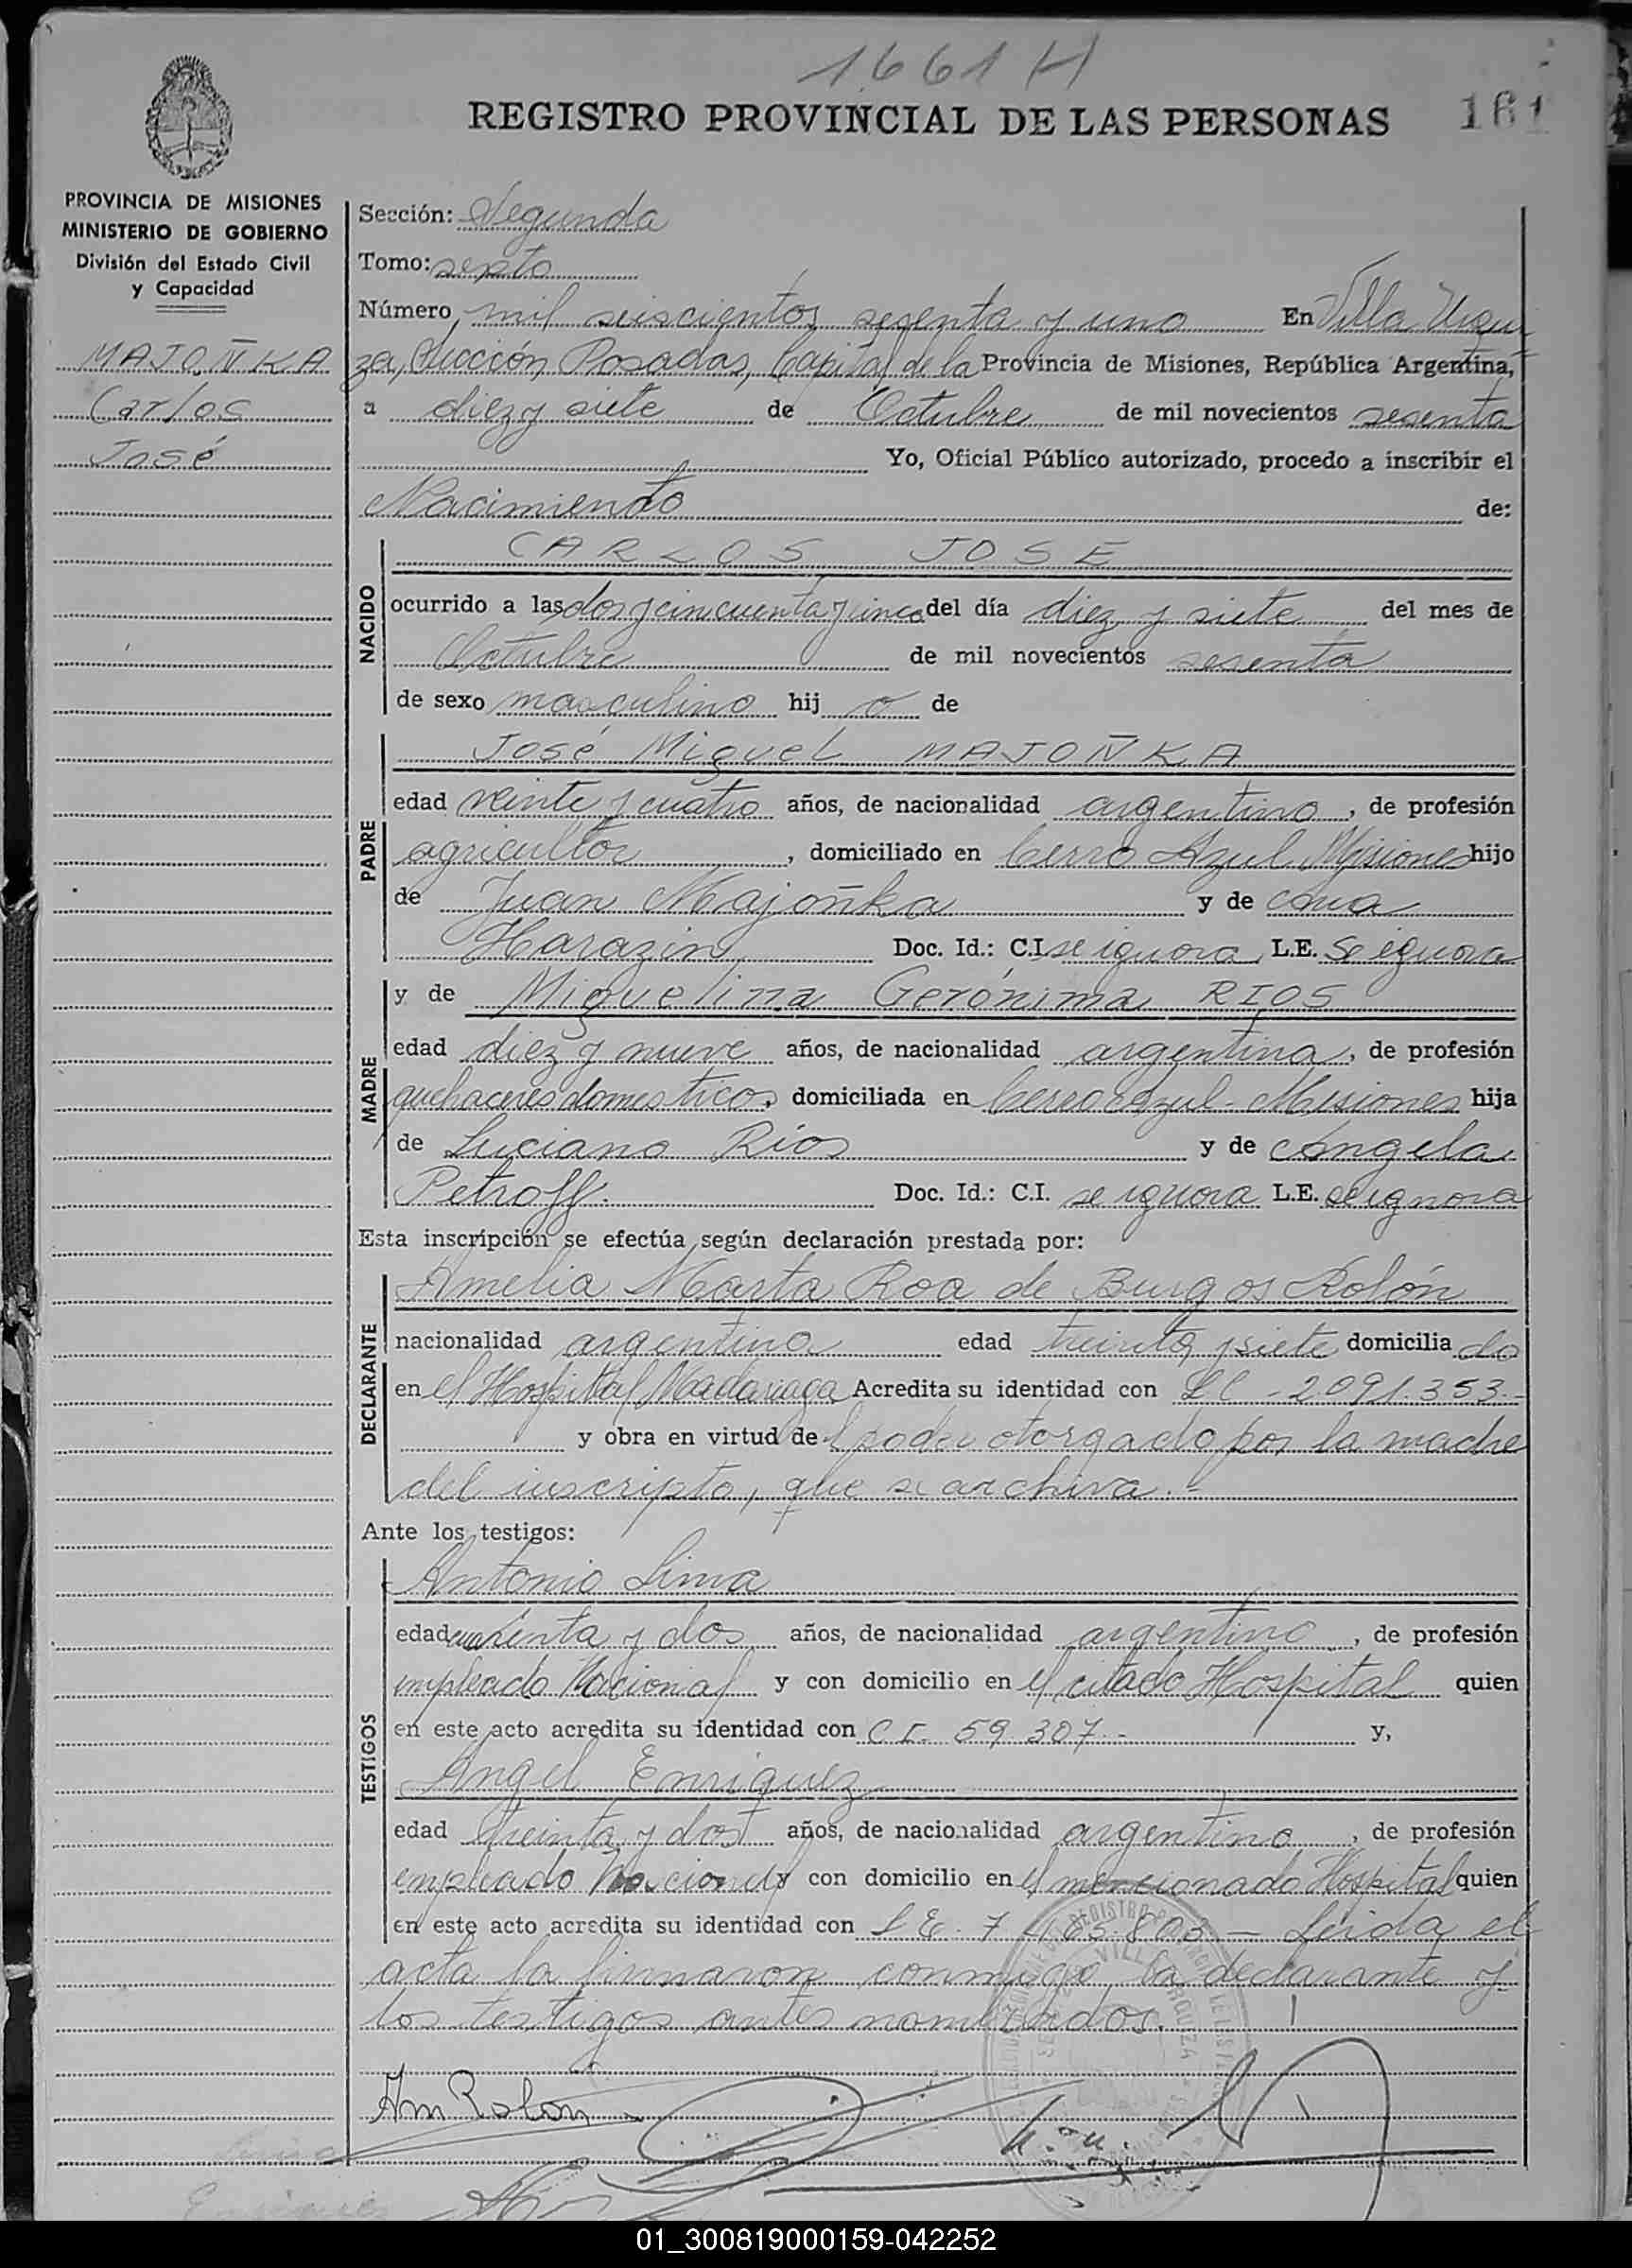 1661 H
REGISTRO PROVINCIAL DE LAS PERSONAS 161
PROVINCIA DE MISIONES
MINISTERIO DE GOBIERNO
División del Estado Civil
y Capacidad
MAJOÑKA
Carlos
José
Sección: Segunda
Tomo: sexto
Número mil seiscientos sesenta y uno En Villa Urqui
za, Sección Posadas, Capital de la Provincia de Misiones, República Argentina,
a diez y siete de Octubre de mil novecientos sesenta
Yo, Oficial Público autorizado, procedo a inscribir el
Nacimiento de:
NACIDO
CARLOS JOSE
ocurrido a las dos y cincuenta y cinco del día diez y siete del mes de
Octubre de mil novecientos sesenta
de sexo masculino hij o de
PADRE
José Miguel MAJOÑKA
edad veinte y cuatro años, de nacionalidad argentino, de profesión
agricultor, domiciliado en Cerro Azul Misiones hijo
de Juan Majoñka y de Ana
Harazin Doc. Id.: C.I. se ignora L.E. se ignora
MADRE
y de Miguelina Gerónima RIOS
edad diez y nueve años, de nacionalidad argentina, de profesión
quehaceres domesticos domiciliada en Cerro Azul - Misiones hija
de Luciano Ríos y de Angela
Petroff. Doc. Id.: C.I. se ignora L.E. se ignora
Esta inscripción se efectúa según declaración prestada por:
DECLARANTE
Amelia Marta Roa de Burgos Rolón
nacionalidad argentina edad treinta y siete domicilia da
en el Hospital Madariaga Acredita su identidad con LC - 2.091.353.-
y obra en virtud del poder otorgado por la madre
del inscripto, que se archiva.-
Ante los testigos:
TESTIGOS
Antonio Lima
edad cuarenta y dos años, de nacionalidad argentino, de profesión
empleado Nacional y con domicilio en el citado Hospital quien
en este acto acredita su identidad con C I. 59.307.- y,
Angel Enriquez
edad treinta y dos años, de nacionalidad argentino, de profesión
empleado Nacional y con domicilio en el mencionado Hospital quien
en este acto acredita su identidad con L E. 7 - Leida el
acta la firmaron conmigo, la declarante y
los testigos antes nombrados.
Am Rolon
Lima
Enriquez
01_300819000159-042252